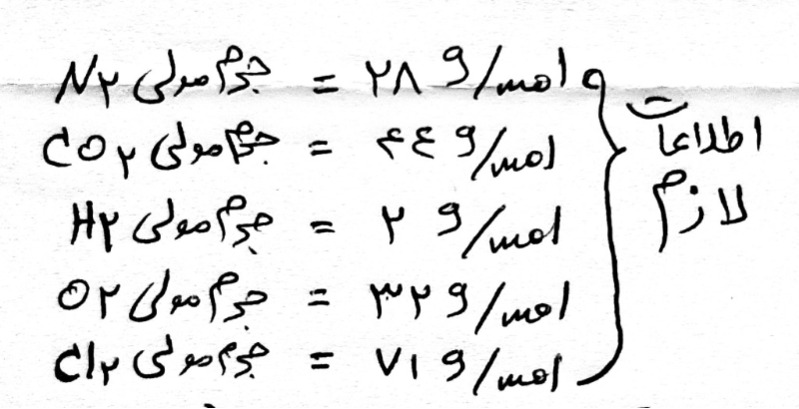 جرم مولی N۲ = ۲۸ g/mol
جرم مولی CO۲ = ۴۴ g/mol
جرم مولی H۲ = ۲ g/mol
جرم مولی O۲ = ۳۲ g/mol
جرم مولی Cl۲ = ۷۱ g/mol
اطلاعات
لازم